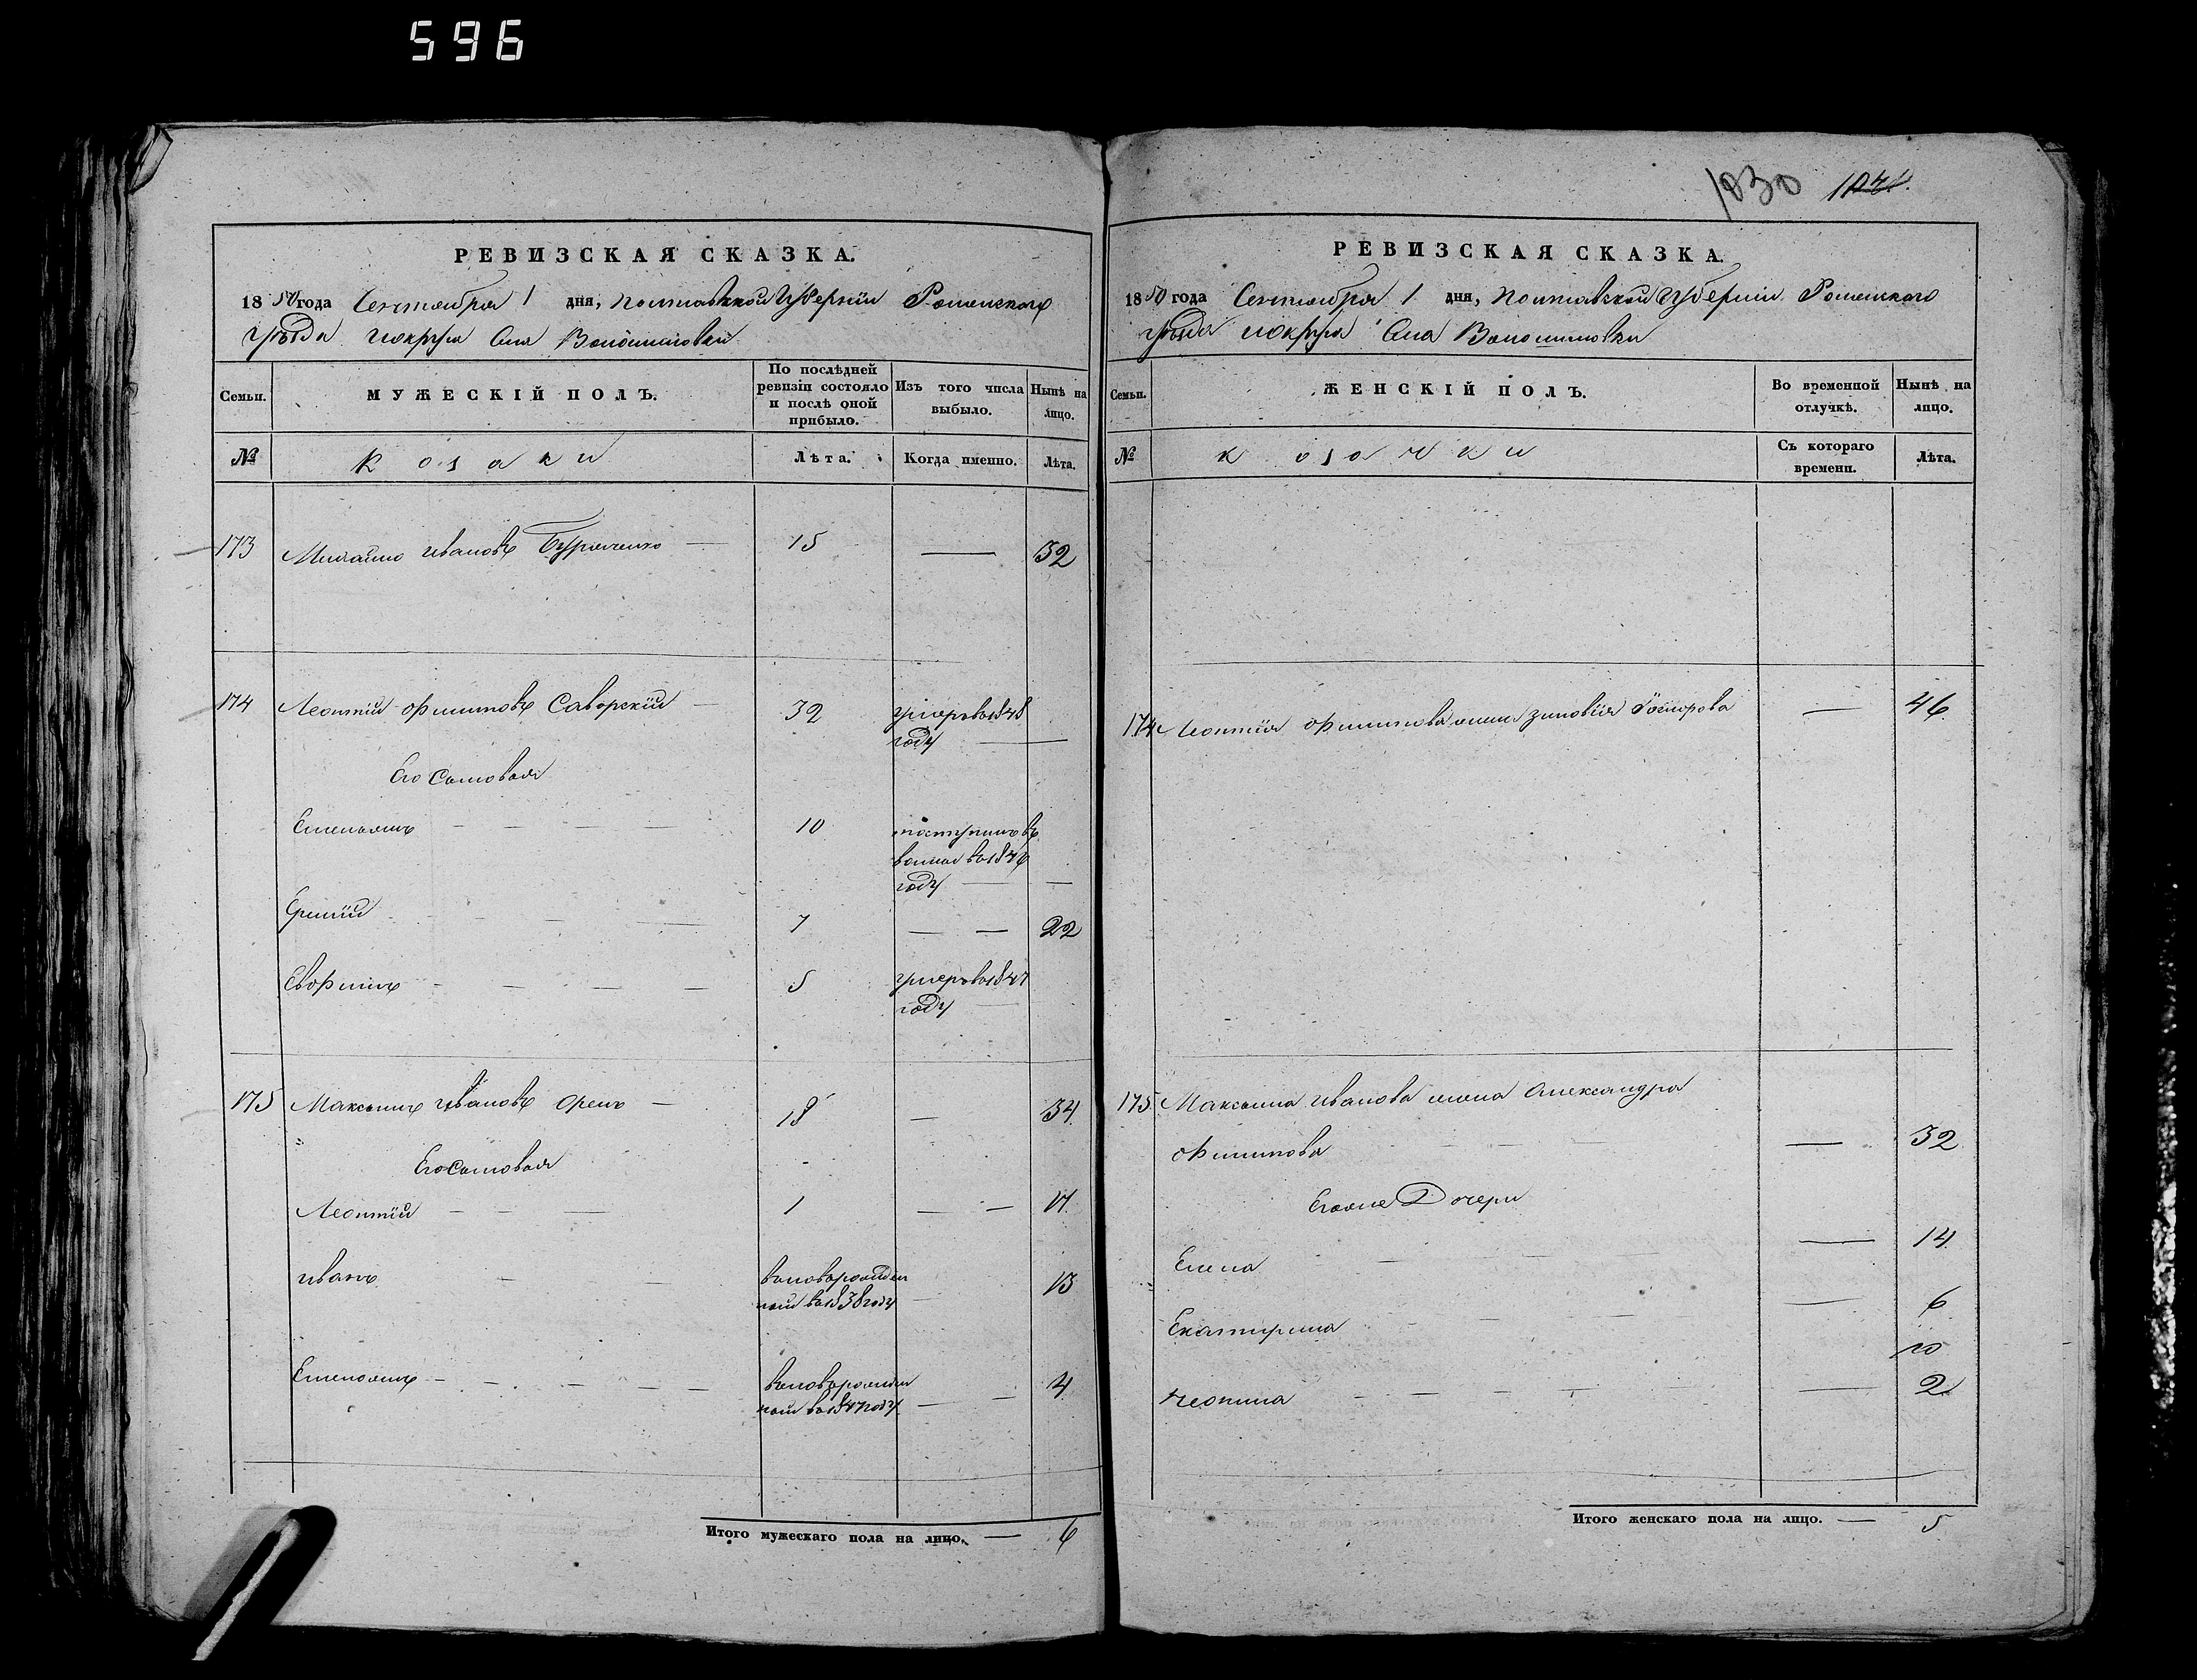 596
РЕВИЗСКАЯ СКАЗКА.
1850 года Сентября 1 дня, Полтавской Губернии Роменского
уѣзда иокруга Села Волошиновки
Семьи.
МУЖЕСКІЙ ПОЛЪ.
По послѣдней
ревизіи состояло
и послѣ оной
прибыло.
Изъ того числа
выбыло.
Нынѣ на
лицо.
№
Козаки
Лѣта.
Когда именно.
Лѣта.
173 Михайло Ивановъ 15 — 32
174 Леонтій Филиповъ Саворскій — 32 умеръ в 1848
году —
Его Сыновья
Степанъ 10 поступилъ въ
году —
7 — — 22
Евфимъ 5 умеръ в 1847
году
175 Максимъ Ивановъ — 18 — 34
Его Сыновья
Леонтій 1 — — 17
Иванъ вновь рожден
ный в 1838 году — 13
Степанъ вновь рожден
ный в 1847 году — 4
Итого мужескаго пола на лицо. — 6
1030
РЕВИЗСКАЯ СКАЗКА.
1850 года Сентября 1 дня, Полтавской Губерніи Роменского
уѣзда иокруга Села Волошиновки
Семьи.
ЖЕНСКІЙ ПОЛЪ.
Во временной
отлучкѣ.
Нынѣ на
лицо.
№
Козачки
Съ котораго
времени.
Лѣта.
174 Леонтія Филипова жена Зиновія — 46
175 Максима Иванова жена Александра
Филипова — 32
Егоже Дочери
Елена — 14
Екатирина — 6
— 2
Итого женскаго пола на лицо. — 5